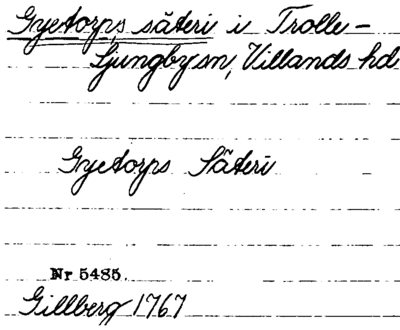 Gyetorps säteri i Trolle-
Ljungby sn, Villands hd
Gyetorps Säteri
Nr 5485.
Gillberg 1767